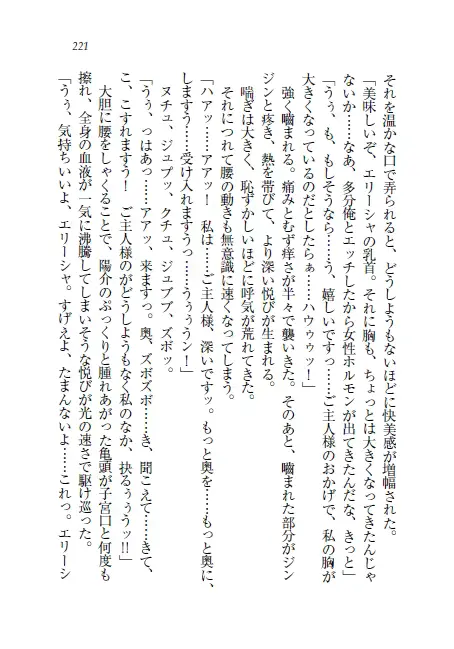 221
それを温かな口で弄られると、どうしようもないほどに快美感が増幅された。
「美味しいぞ、エリーシャの乳首。それに胸も、ちょっとは大きくなってきたんじゃ
ないか……なあ、多分俺とエッチしたから女性ホルモンが出てきたんだな、きっと」
「うぅ、も、もしそうなら……う、嬉しいですっ……ご主人様のおかげで、私の胸が
大きくなっているのだとしたらぁ……ハウゥゥッ！」
強く嚙まれる。痛みとむず痒さが半々で襲いきた。そのあと、嚙まれた部分がジン
ジンと疼き、熱を帯びて、より深い悦びが生まれる。
喘ぎは大きく、恥ずかしいほどに呼気が荒れてきた。
それにつれて腰の動きも無意識に速くなってしまう。
「ハアッ……アアッ！　私は……ご主人様、深いですッ。もっと奥を……もっと奥に、
しますう……受け入れますうっ……うぅうン！」
ヌチュ、ジュプッ、クチュ、ジュブブ、ズボッ。
「うぅ、っはあっ……アアッ、来ますっ。奥、ズボズボ……き、聞こえて……きて、
こ、こすれますう！　ご主人様のがどうしようもなく私のなか、抉るぅぅうッ!!」
大胆に腰をしゃくることで、陽介のぷっくりと腫れあがった亀頭が子宮口と何度も
擦れ、全身の血液が一気に沸騰してしまいそうな悦びが光の速さで駆け巡った。
「うぅ、気持ちいいよ、エリーシャ。すげえよ、たまんないよ……これっ。エリーシ